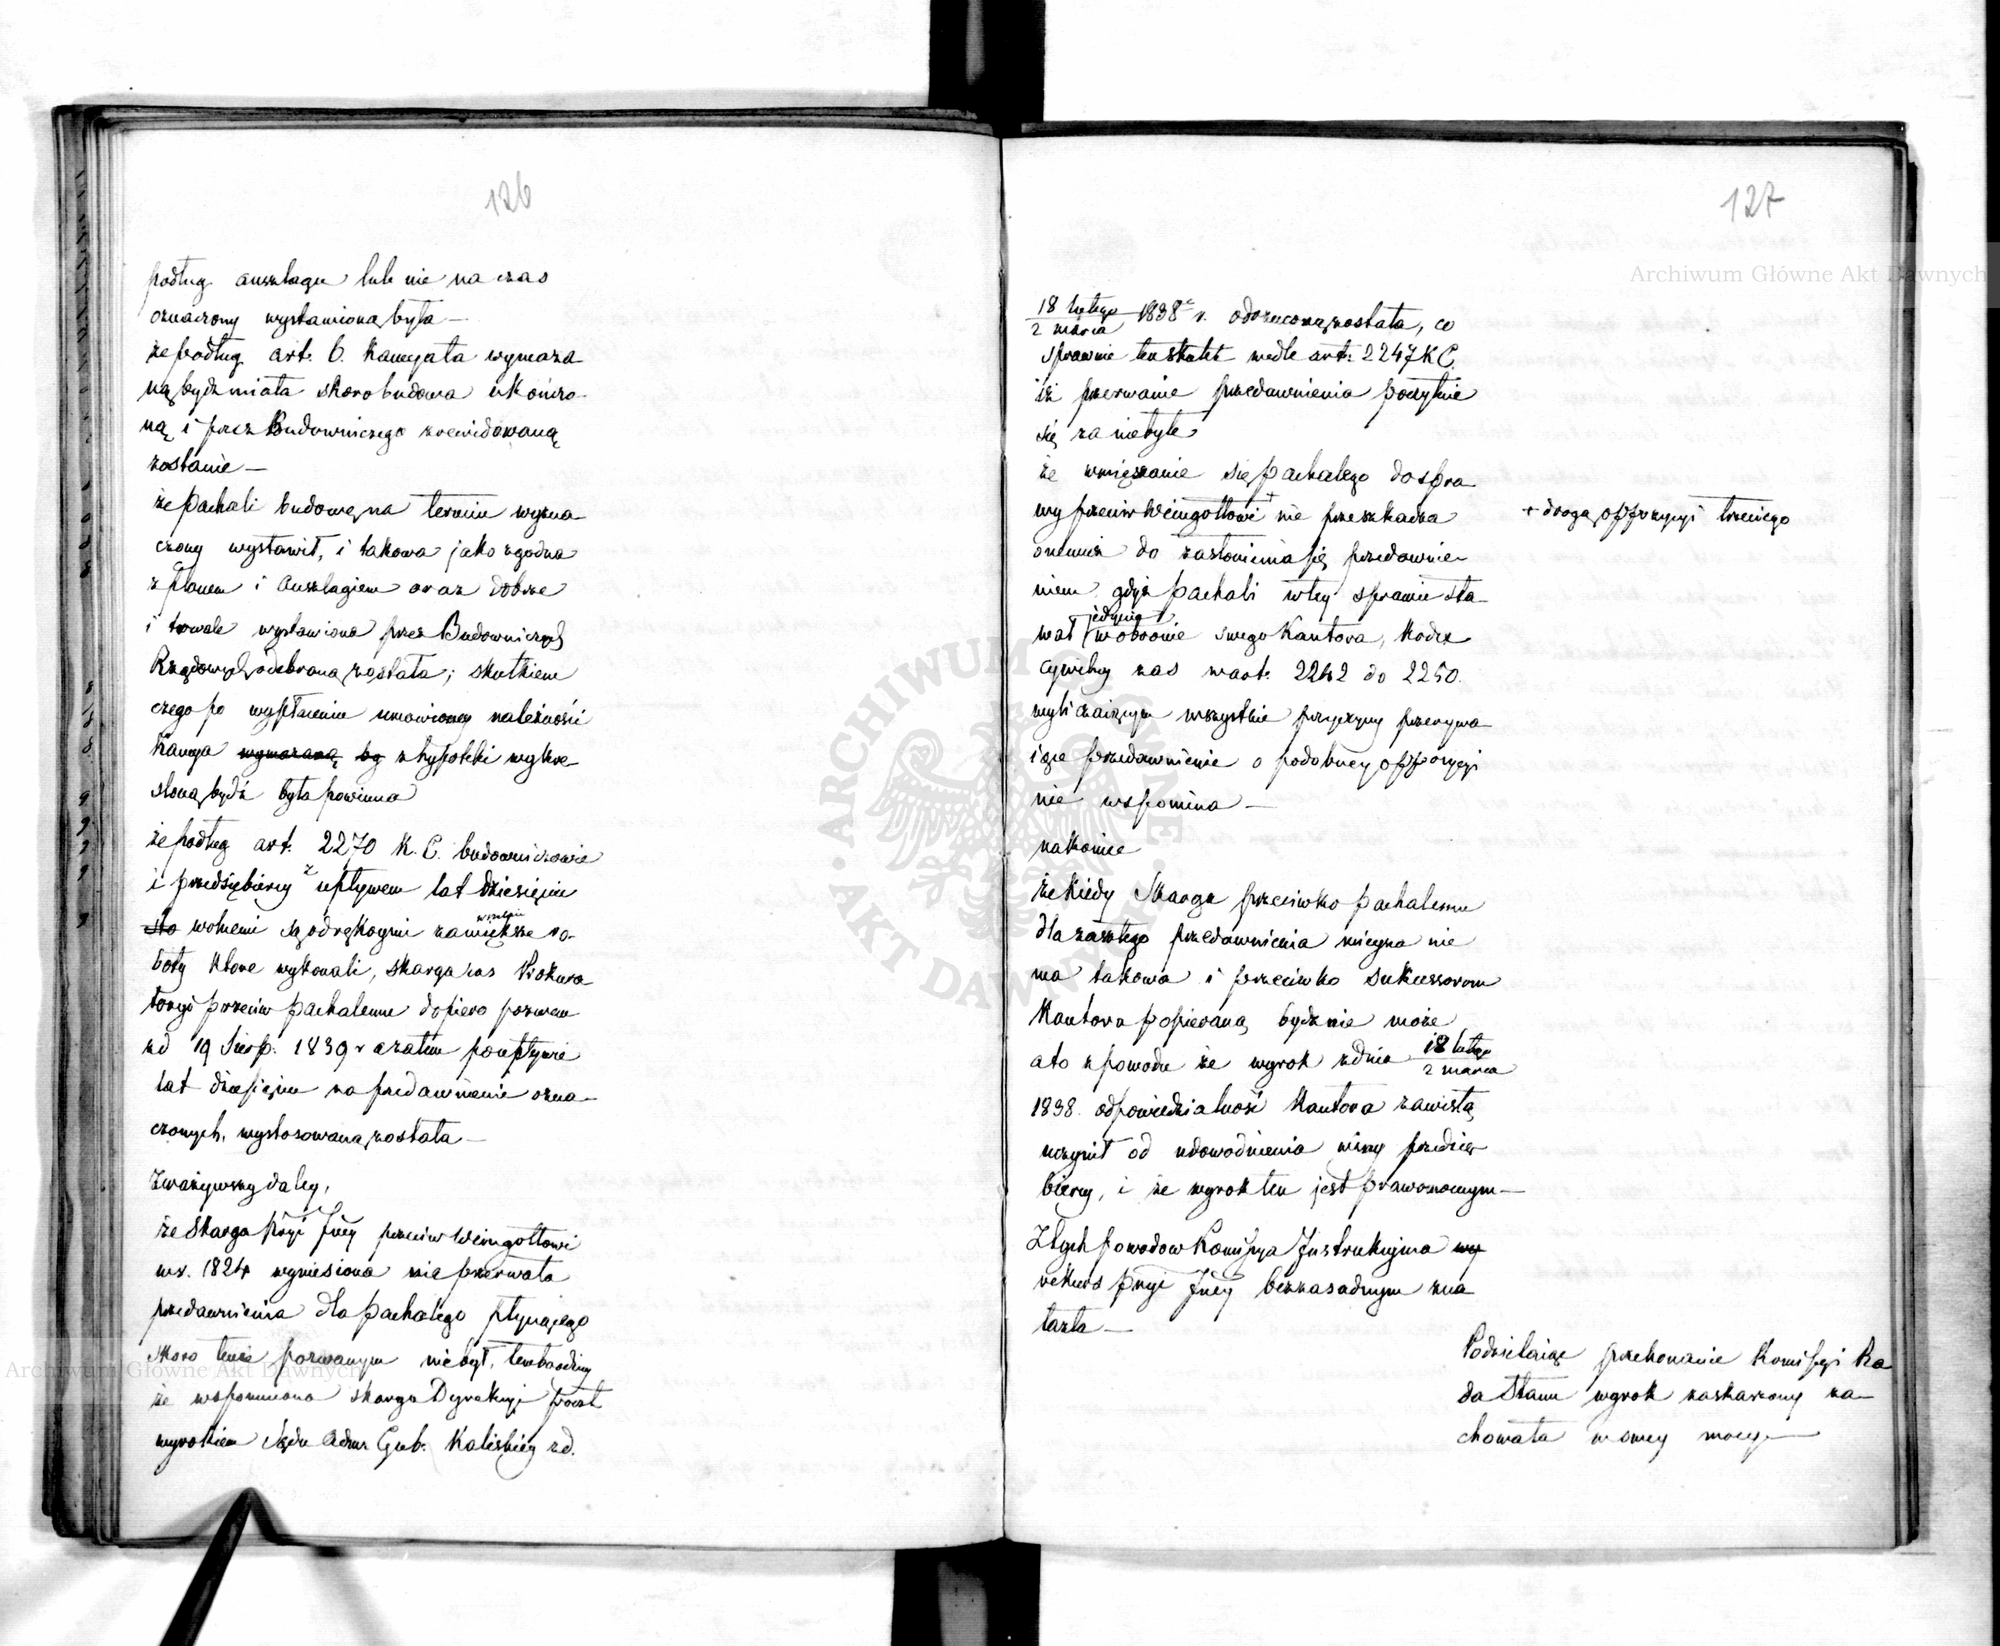 126
podług anszlagu lub nie na czas
oznaczony wystawioną była —
że podług art. 6. Kaucyata wymaza
ną bydz miała skoro budowa ukończo-
ną i przez Budowniczego zrewidowaną
zostanie —
że Pachali budowę na termin wyzna
czony wystawił, i takowa jako zgodna
z planem i anszlagiem oraz dobrze
i trwale wystawiona przez Budowniczych
Rządowych odebraną została; skutkiem
czego po wypłaceniu umowioney należności
Kaucya wymazaną by z hypoteki wykre-
sloną bydź była powinna
że podług art. 2270 K. C. budowniczowie
i przedsiębiercy z upływem lat dziesięciu
sto wolnemi są od rękoymi za większe wszelkie ro-
boty które wykonali, skarga zas Prokura
toryi przeciw Pachalemu dopiero pozwem
z d 19 Sierp. 1839 r a zatem po upływie
lat dziesięciu na przedawnienie ozna-
czonych, wystosowaną została —
Zważywszy daley,
że Skarga Pryi Jney przeciw Weingottowi
w r. 1824 wyniesiona nie przerwała
przedawnienia dla Pachalego płynącego
skoro tenże pozwanym nie był, tembardziey
że wspomniona skarga Dyrekcyi Poczt
wyrokiem Sądu Adm Gub. Kaliskiey z d.
127
18 lutego/2 marca 1838 r. odrzuconą została, co
sprawia ten skutek wedle art. 2247 K C.
iż przerwanie przedawnienia poczytuie
się za niebyłe
że wmięszanie się Pachalego do spra
wy przeciw Weingottowi + nie przeszkadza
onemuż do zasłonienia się przedawnie-
niem gdyż Pachali w tey sprawie sta-
wał jedynie w obronie swego Kantora, Kodex
cywilny zas w art. 2242 do 2250.
wyliczaiącym wszystkie przyczyny przerywa
iące przedawnienie o podobney oppozycyi
nie wspomina —
nakoniec
że kiedy Skarga przeciwko Pachalemu
dla zaszłego przedawnienia mieysca nie
ma takowa i przeciwko sukcessorom
Kantora popieraną bydz nie może
a to z powodu że wyrok z dnia 18 lutego/2 marca
1838. odpowiedzialność Kantora zawisłą
uczynił od udowodnienia winy przedsię
biercy, i że wyrok ten jest prawomocnym —
Z tych powodow Kommissya Instrukcyina wy
rekurs Pryi Jney bezzasadnym zna
lazła —
+ drogą oppozycyi trzeciego
Podzielaiąc przekonanie Komissyi Ra
da Stanu wyrok zaskarżony za-
chowała w swey mocy —
Archiwum Główne Akt Dawnych
Archiwum Główne Akt Dawnych
ARCHIWUM GŁÓWNE AKT DAWNYCH